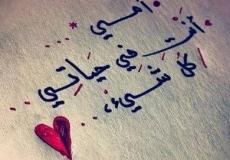 أمي
أنت في حياتي
كل شيء